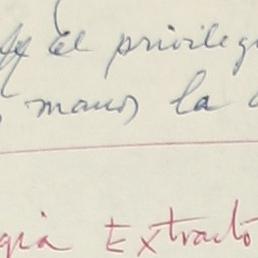 el privileg
manos la
gia Extracto